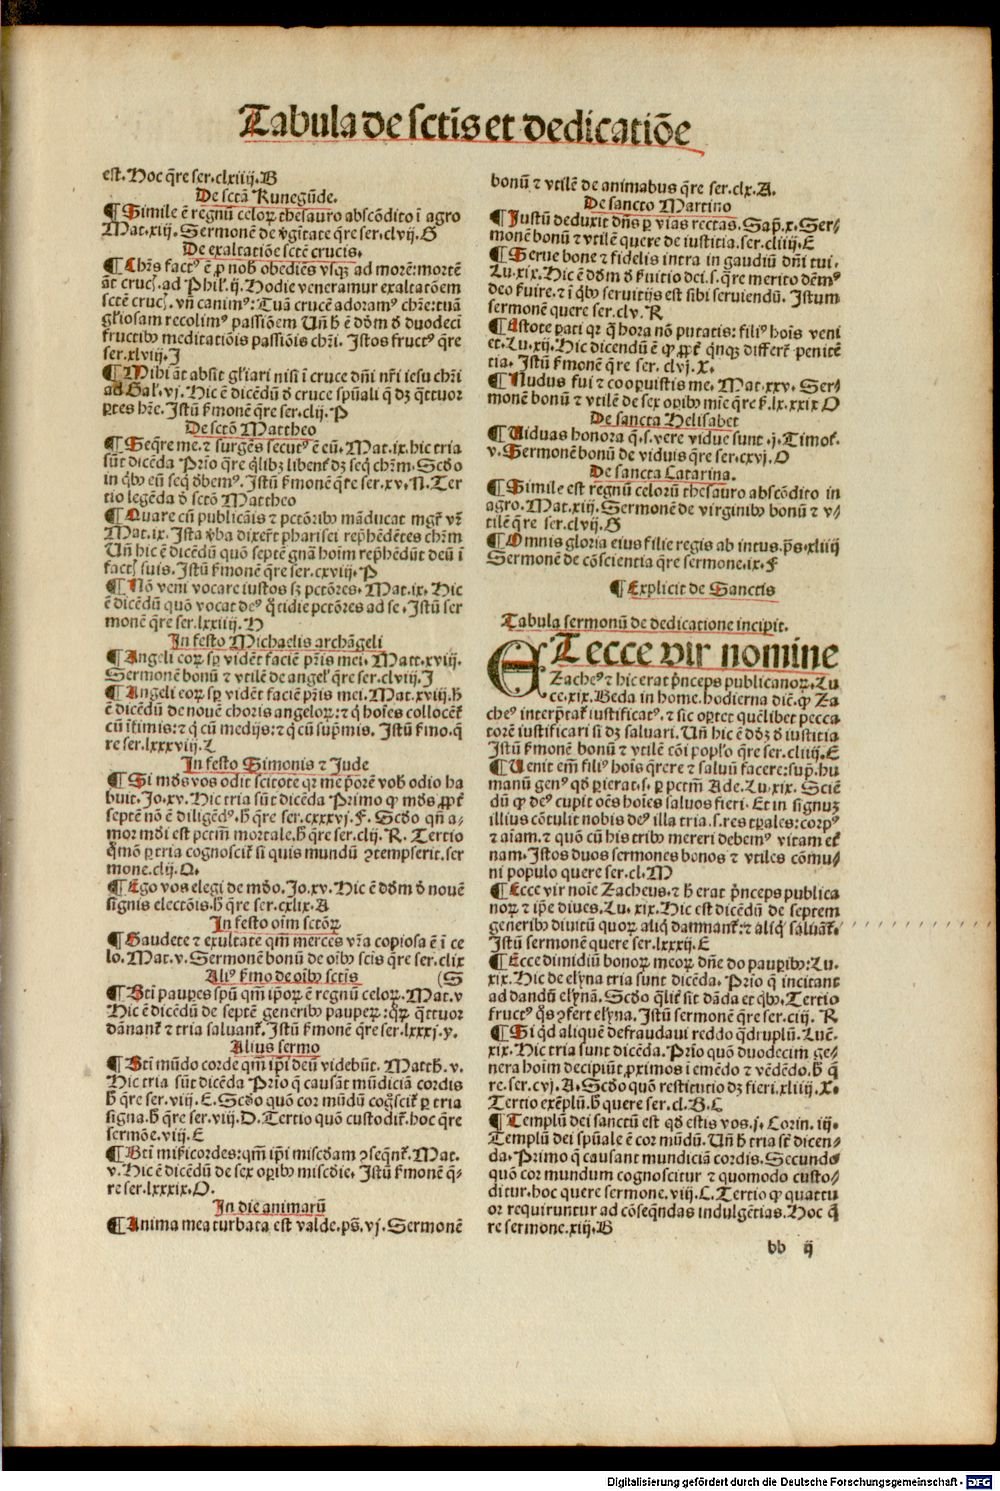 Tabula de sctīs et dedicatiōe
est. Hoc q̄re ser. clxiiij. B
De sctā Kunegūde.
¶ Simile ē regnū celoꝝ thesauro abscōdito ī agro
Mat. xiij. Sermonē de v̓gītate q̄re ser. clvij. G
De exaltatiōe sctē crucis.
¶ Chrs̄ factꝰ ē ꝓ nob̄ obediēs vsqꝫ ad mortē: mortē
āt crucꝭ. ad Phil̓. ij. Hodie veneramur exaltatōem
sctē crucꝭ. vn̄ canimꝰ: Tuā crucē adoramꝰ chr̄e: tuā
gl̓iosam recolimꝰ passiōem Un̄ h̄ ē dōm d̓ duodeci
fructibꝰ meditatiōis passiōis chr̄i. Istos fructꝰ q̄re
ser. xlviij. I
¶ Mihi āt absit gl̓iari nisi ī cruce dn̄i nr̄i iesu chr̄i
ad Gal̓. vj. Hic ē dicēdū d̓ cruce spūali q̄ dꝫ q̄ttuor
ꝑtes hr̄e. Istū s̓monē q̄re ser. clij. P
De sctō Mattheo
¶ Seq̄re me. ⁊ surgēs secutꝰ ē eū. Mat. ix. hic tria
sūt dicēda Prīo q̄re q̄libꝫ libent̓ dꝫ seq̄ chr̄m. Scd̓o
in q̄bꝰ eū seq̄ d̓bemꝰ. Istū s̓monē q̄re ser. xv. N. Ter
tio legēda d̓ sctō Mattheo
¶ Quare cū publicāis ⁊ pctōribꝰ māducat mgr̄ vr̄
Mat. ix. Ista v̓ba dixer̄t pharisei rep̄hēdētes chr̄m
Un̄ hic ē dicēdū quō septē gnā hoīm rep̄hēdūt deū ī
factꝭ suis. Istū s̓monē q̄re ser. cxviij. P
¶ Nō veni vocare iustos sꝫ pctōres. Mat. ix. Hic
ē dicēdū quō vocat deꝰ q̄tidie pctōres ad se. Istū ser
monē q̄re ser. lxxiiij. H
In festo Michaelis archāgeli
¶ Angeli eoꝝ sꝑ vidēt faciē pr̄is mei. Matt. xviij.
Sermonē bonū ⁊ vtilē de angel̓ q̄re ser. clviij. I
¶ Angeli eoꝝ sꝑ vidēt faciē pr̄is mei. Mat. xviij. h̄
ē dicēdū de nouē choris angeloꝝ: ⁊ q̄ hoīes collocēt̓
cū īfimis: ⁊ q̄ cū medijs: ⁊ q̄ cū sup̄mis. Istū s̓mo. q̄
re ser. lxxxviij. L
In festo Simonis ⁊ Jude
¶ Si mūd̓s vos odit scitote qꝛ me p̄orē vob̄ odio ha
buit. Jo. xv. Hic tria sūt dicēda Primo ꝙ mūd̓s ꝓpt̓
septē nō ē diligēdꝰ. h̄ q̄re ser. cxxxvj. F. Scd̓o qn̄ a-
mor mūd̓i est pctm̄ mortale. h̄ q̄re ser. clij. R. Tertio
q̄mō ꝑ tria cognoscit̓ si quis mundū ꝯtempserit. ser
mone. clij. Q.
¶ Ego vos elegi de mūd̓o. Jo. xv. Hic ē dōm d̓ nouē
signis electōis. h̄ q̄re ser. cxlix. A
In festo oīm sctōꝝ
¶ Gaudete ⁊ exultate qm̄ merces vr̄a copiosa ē ī ce
lo. Mat. v. Sermonē bonū de oībꝰ scīs q̄re ser. clix
Aliꝰ s̓mo de oībꝰ sctis (S
¶ Bt̄i pauꝑes spū qm̄ ip̄oꝝ ē regnū celoꝝ. Mat. v
Hic ē dicēdū de septē generibꝰ pauperꝝ: q̄ꝝ q̄ttuor
dānant̓ ⁊ tria saluant̓. Istū s̓monē q̄re ser. lxxxj. y.
Alius sermo
¶ Bt̄i mūdo corde qm̄ ip̄i deū videbūt. Matth. v.
Hic tria sūt dicēda Prīo q̄ causāt mūdiciā cordis
h̄ q̄re ser. viij. E. Scd̓o quō cor mūdū cog̓scit̓ ꝑ tria
signa. h̄ q̄re ser. viij. D. Tertio quō custodit̓. hoc q̄re
sermōe. viij. E
¶ Bt̄i mīsicordes: qm̄ ip̄i misc̄dam ꝯseqnt̓. Mat.
v. Hic ē dicēdū de sex oꝑibꝰ misc̄die. Istū s̓monē q̄-
re ser. lxxxix. O.
In die animarū
¶ Anima mea turbata est valde. ps̄. vj. Sermonē
bonū ⁊ vtilē de animabus q̄re ser. clx. A.
De sancto Martino
¶ Justū deduxit dn̄s ꝑ vias rectas. Sap̄. x. Ser-
monē bonū ⁊ vtilē quere de iustitia. ser. cliiij. E
¶ Serue bone ⁊ fidelis intra in gaudiū dn̄i tui.
Lu. xix. Hic ē dōm d̓ s̓uitio dei. s. q̄re merito dēmꝰ
deo s̓uire. ⁊ ī q̄bꝰ seruitijs est sibi seruiendū. Istum
sermonē quere ser. clv. R
¶ Estote ꝑati qꝛ q̄ hora nō putatis: filiꝰ hoīs veni
et. Lu. xij. Hic dicendū ē ꝙ ꝓpt̓ q̄nqꝫ differt̓ penitē
tia. Istū s̓monē q̄re ser. clvj. X.
¶ Nudus fui ⁊ cooꝑuistis me. Mat. xxv. Ser-
monē bonū ⁊ vtilē de sex oꝑibꝰ mīe q̄re s̓. lxxxix O
De sancta Helisabet
¶ Uiduas honora q̄. s. vere vidue sunt. j. Timot̓.
v. Sermonē bonū de viduis q̄re ser. cxvj. O
De sancta Catarina.
¶ Simile est regnū celorū thesauro abscōdito in
agro. Mat. xiij. Sermonē de virginibꝰ bonū ⁊ v-
tilē q̄re ser. clvij. G
¶ Omnis gloria eius filie regis ab intus. ps̄. xliiij
Sermonē de cōscientia q̄re sermone. ix. F
¶ Explicit de Sanctis
Tabula sermonū de dedicatione incipit.
ET ecce vir nomine
Zacheꝰ ⁊ hic erat p̄nceps publicanoꝝ. Lu
ce. xix. Beda in home. hodierna diē. ꝙ Za
cheꝰ interp̄tat̓ iustificatꝰ. ⁊ sic oꝑtet quēlibet pecca
torē iustificari si dꝫ saluari. Un̄ hic ē dōꝫ d̓ iustitia
Istū s̓monē bonū ⁊ vtilē cōi popl̓o q̄re ser. cliiij. E
¶ Uenit em̄ filiꝰ hoīs q̄rere ⁊ saluū facere: sup̄. hu
manū genꝰ qd̓ ꝑierat. s. ꝑ pctm̄ Ade. Lu. xix. Sciē
dū ꝙ deꝰ cupit oēs hoīes saluos fieri. Et in signuꝫ
illius cōtulit nobis deꝰ illa tria. s. res tꝑales: corpꝰ
⁊ aīam. ⁊ quō cū his tribꝰ mereri debemꝰ vitam et̓
nam. Istos duos sermones bonos ⁊ vtiles cōmu-
ni populo quere ser. cl. M
¶ Ecce vir noīe Zacheus. ⁊ h̄ erat p̄nceps publica
noꝝ ⁊ ip̄e diues. Lu. xix. Hic est dicēdū de septem
generibꝰ diuitū quoꝝ aliq̄ damnant̓: ⁊ aliq̄ saluāt̓.
Istū sermonē quere ser. lxxxij. E
¶ Ecce dimidiū bonoꝝ meoꝝ dn̄e do pauꝑibꝰ: Lu.
xix. Hic de elyn̄a tria sunt dicēda. Prīo q̄ incitant
ad dandū elyn̄ā. Scd̓o q̄lit̓ sit dāda et q̄bꝰ. Tertio
fructꝰ q̄s ꝯfert elyn̄a. Istū sermonē q̄re ser. ciij. R
¶ Si qd̓ aliquē defraudaui reddo q̄druplū. Luc̄.
xix. Hic tria sunt dicēda. Prīo quō duodecim ge-
nera hoīm decipiūt ꝓximos ī emēdo ⁊ vēdēdo. h̄ q̄
re. ser. cvj. A. Scd̓o quō restitutio dꝫ fieri. xliiij. X.
Tertio exēplū. h̄ quere ser. cl. B. C
¶ Templū dei sanctū est qd̓ estis vos. j. Corin. iij.
Templū dei spūale ē cor mūdū. Un̄ h̄ tria st̄ dicen-
da. Primo q̄ causant mundiciā cordis. Secundo
quō cor mundum cognoscitur ⁊ quomodo custo-
ditur. hoc quere sermone. viij. C. Tertio ꝙ quattu
or requiruntur ad cōseq̄ndas indulgētias. Hoc q̄
re sermone. xiij. B
bb ij
Digitalisierung gefördert durch die Deutsche Forschungsgemeinschaft - DFG